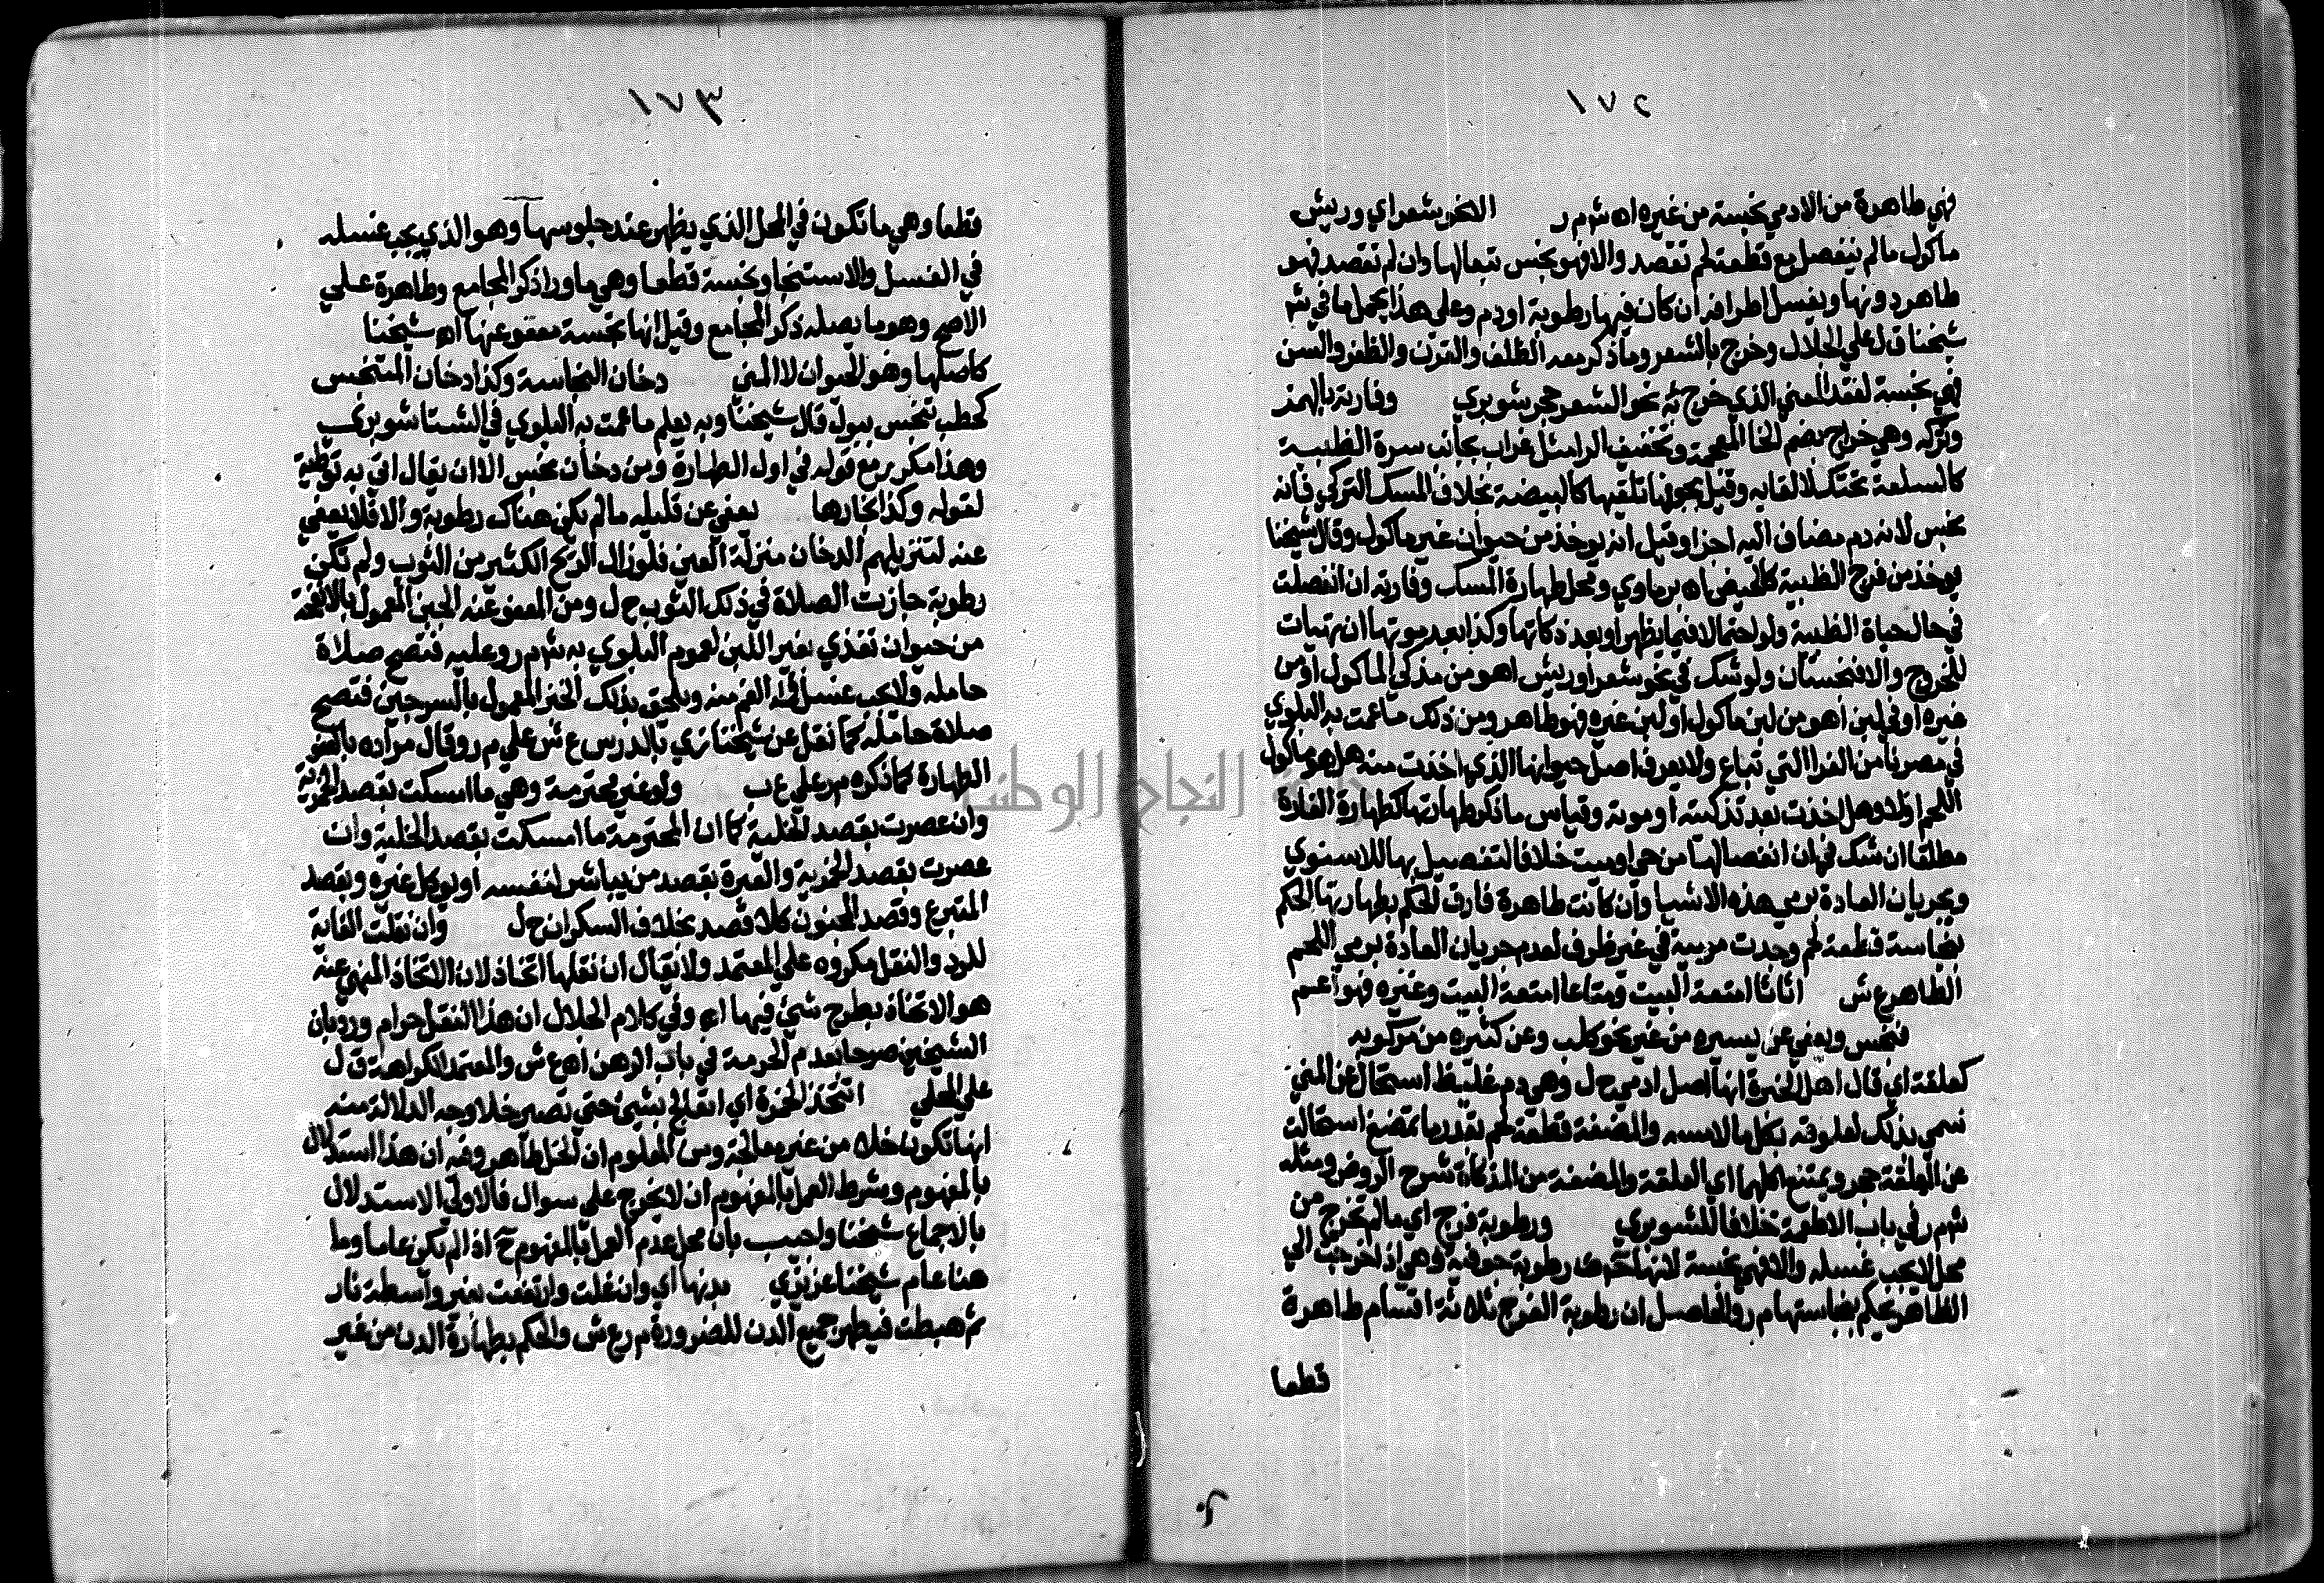 ١٧٢
فهي طاهرة من الادمي نجسة من غيره اه ش م ر الا نحو شعر اي وريش
ماكول ما لم ينفصل مع قطعة لحم تقصد والا فهو نجس تبعا لها وان لم تقصد فهو
طاهر دونها ويغسل اطرافه ان كان فيها رطوبة او دم وعلى هذا يحمل ما في ش
شيخنا ق ل علي الجلال وخرج بالشعر وما ذكر معه الظلف والقرن والظفر والسن
فهي نجسة لفقد المعني الذي خرج به نحو الشعر حجر شوبري وفارته بالهمز
وتركه وهي خراج بضم الخا المعجمة وتخفيف الرا مثل غراب بجانب سرة الظبية
كالسلعة تحتك لالقايه وقيل بجوفها تلقيها كالبيضة بخلاف المسك التركي فانه
نجس لانه دم مضاف اليه اجزا وقيل انه يوخذ من حيوان غير ماكول وقال شيخنا
يوخذ من فرج الظبية كالحيض اه برماوي ومحل طهارة المسك وفارته ان انفصلت
في حال حياة الظبية ولو احتمالا فيما يظهر او بعد ذكاتها وكذا بعد موتها ان تهيات
للخروج والا فنجستان ولو شك في نحو شعر او ريش اهو من مذكي الماكول او من
غيره او في لبن اهو من لبن ماكول او لبن غيره فهو طاهر ومن ذلك ما عمت به البلوي
في مصرنا من الفرا التي تباع ولا يعرف اصل حيوانها الذي اخذت منه هل هو ماكول
اللحم او لا وهل اخذت بعد تذكيته او موته وقياس ما ذكر طهارتها كطهارة الفارة
مطلقا ان شك في ان انفصالها من حي او ميت خلافا لتفصيل بها للاسنوي
وبجريان العادة برمي هذه الاشيا وان كانت طاهرة فارق الحكم بطهارتها الحكم
بنجاسة قطعة لحم وجدت مرمية في غير ظرف لعدم جريان العادة برمي اللحم
الطاهر ع ش اثاثا امتعة البيت ومتاعا امتعة البيت وغيره فهو اعم
فنجس ويعفي عن يسيره من غير نحو كلب وعن كثيره من مركوبه
كعلقة اي قال اهل الخبرة انها اصل ادمي ح ل وهي دم غليظ استحال عن المني
سمي بذلك لعلوقه بكل ما لامسه والمضغة قطعة لحم بقدر ما يمضغ استحالت
عن العلقة حجر ويمتنع اكلهما اي العلقة والمضغة من المذكاة شرح الروض ومثله
ش م ر في باب الاطعمة خلافا للشوبري ورطوبة فرج اي ما لم تخرج من
محل لا يجب غسله والا فهي نجسة لانها رطوبة جوفية وهي اذا خرجت الي
الظاهر يحكم بنجاستها م ر والحاصل ان رطوبة الفرج ثلاثة اقسام طاهرة
قطعا
١٧٣
قطعا وهي ما تكون في المحل الذي يظهر عند جلوسها وهو الذي يجب غسله
في الغسل والاستنجا ونجسة قطعا وهي ما ورا ذكر المجامع وطاهرة علي
الاصح وهو ما يصله ذكر المجامع وقيل انها نجسة معفو عنها اه شيخنا
كاصلها وهو الحيوان لا المني دخان النجاسة وكذا دخان المتنجس
كحطب تنجس ببول قال شيخنا وبه يعلم ما عمت به البلوي في الشتا شوبري
وهذا مكرر مع قوله في اول الطهارة ومن دخان نجس الا ان يقال اتي به توطية
لقوله وكذا بخارها يعفي عن قليله ما لم يكن هناك رطوبة والا فلا يعفي
عنه لتنزيلهم الدخان منزلة العين فلو زال الريح الكثير من الثوب ولم تكن
رطوبة جازت الصلاة في ذلك الثوب ح ل ومن المعفو عنه الجبن المعمول بالانفحة
من حيوان تغذي بغير اللبن لعموم البلوي به ش م ر وعليه فتصح صلاة
حامله ولا يجب غسل الفم منه ويلحق بذلك الخبز المعمول بالسرجين فتصح
صلاة حامله كما نقل عن شيخنا زي بالدرس ع ش علي م ر وقال مراده بالعفو
الطهارة كما ذكره م ر علي ع ب ولو غير محترمة وهي ما امسكت بقصد الخمرية
وان عصرت بقصد الخلية كما ان المحترمة ما امسكت بقصد الخلية وان
عصرت بقصد الخمرية والعبرة بقصد من يباشر لنفسه او يوكل غيره وبقصد
المتبرع وقصد المجنون كلا قصد بخلاف السكران ح ل وان نقلت الفاية
للرد والنقل مكروه علي المعتمد ولا يقال ان نقلها اتخاذ لان الاتخاذ المنهي عنه
هو الاتخاذ بطرح شي فيها اه وفي كلام الجلال ان هذا النقل حرام ورد بان
الشيخين صرحا بعدم الحرمة في باب الرهن اه ع ش والمعتمد الكراهة ق ل
علي المحلي اتتخذ الخمرة اي انعالج بشي حتي تصير خلا وجه الدلالة منه
انها تكون خلا من غير معالجة ومن المعلوم ان الخل طاهر وفيه ان هذا استدلال
بالمفهوم وشرط العمل بالمفهوم ان لا يخرج علي سوال فالاولي الاستدلال
بالاجماع شيخنا واجيب بان محل عدم العمل بالمفهوم ح اذا لم يكن عاما وما
هنا عام شيخنا عزيزي بدنها اي وان غلت وارتفعت بغير واسطة نار
ثم هبطت فيطهر جميع الدن للضرورة م ر ع ش والحكم بطهارة الدن من غير
جامعة النجاح الوطنية